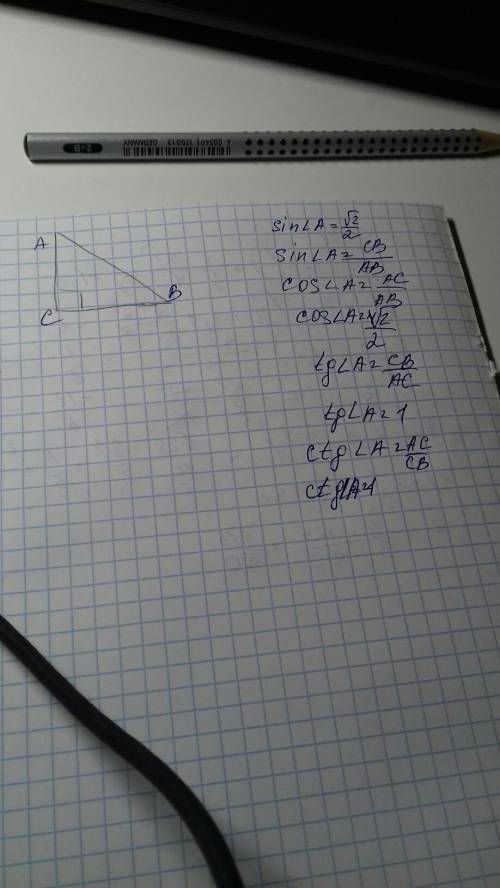 2=B
GERMANY
A
C
B
sin∠A=√2/2
sin∠A=CB/AB
cos∠A=AC/AB
cos∠A=√2/2
tg∠A=CB/AC
tg∠A=1
ctg∠A=AC/CB
ctg∠A=1